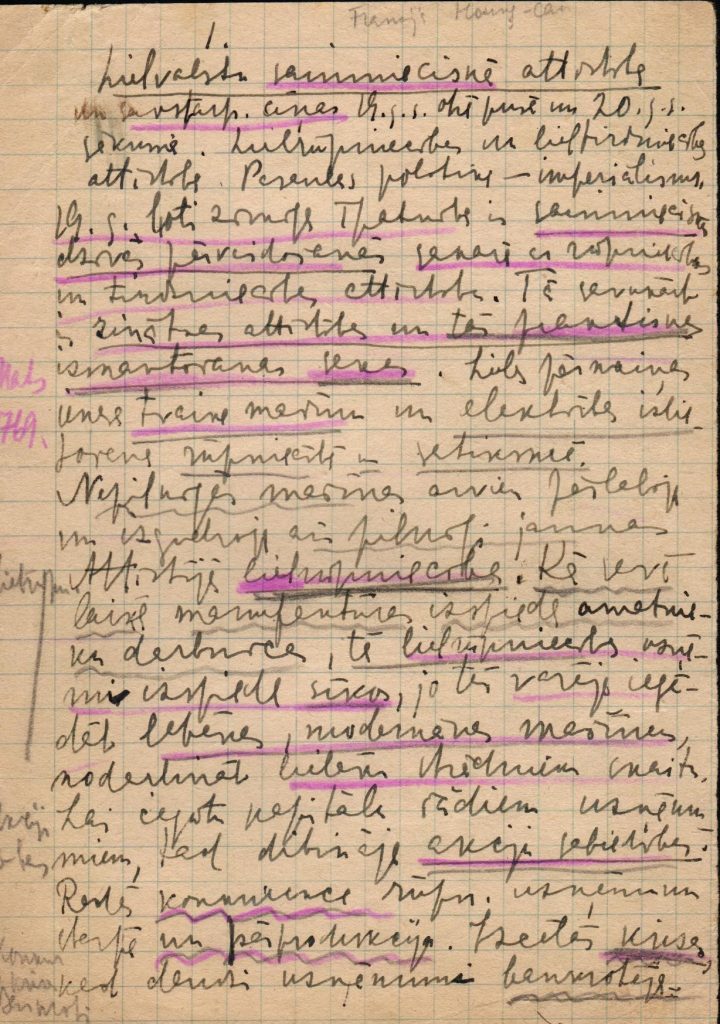 1.
Lielvalstu saimnieciskā attīstība
un savstarp. cīņas 19. g. s. otrā pusē un 20. g. s.
sākumā. Lielrūpniecības un lieltirdzniecības
attīstība. Pasaules politika – imperiālisms.
19. g. ļoti zīmīga īpatnība ir saimnieciskās
dzīves pārveidošanās sakarā ar rūpniecības
un tirdzniecības attīstību. Tā savukārt
ir zinātnes attīstības un tās praktiskas
izmantošanas sekas. Lielas pārmaiņas
tvaika mašīnu un elektrības izlie-
tošana rūpniecībā un satiksmē.
Nepilnīgās mašīnas arvien pārlaboja
un izgudroja ar jaunas
Attīstījās lielrūpniecība. Kā savā
laikā manufaktūras izspieda amatnie-
ku darbnīcas, tā lielrūpniecības uzņē-
mumi izspieda sīkos, jo tās varēja iegā-
dāt labākas, modernākas mašīnas,
nodarbināt lielāku strādnieku skaitu.
Lai iegūtu kapitālu šādiem uzņēmu
miem, tad dibināja akciju sabiedrības.
Radās konkurence rūpn. uzņēmumu
starpā un pārprodukcija. Izcēlās krīzes,
kad daudzi uzņēmumi bankrotēja.